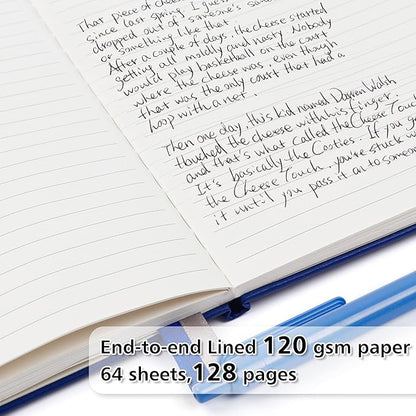 That piece of cheese
since last spring, I guess
dropped out of someone's
or something like that.
After a couple of days, the cheese started
getting all moldy and nasty. Nobody
would play basketball on the court
where the cheese was, even though
that was the only court that had a
hoop with a net.
Then one day, this kid named Darren Walsh
touched the cheese with his finger,
and that's what called the Cheese Touch
It's basically the Cooties. If you get
the Cheese Touch, you're stuck with
it until you pass it on to someone
End-to-end Lined 120 gsm paper
64 sheets,128 pages